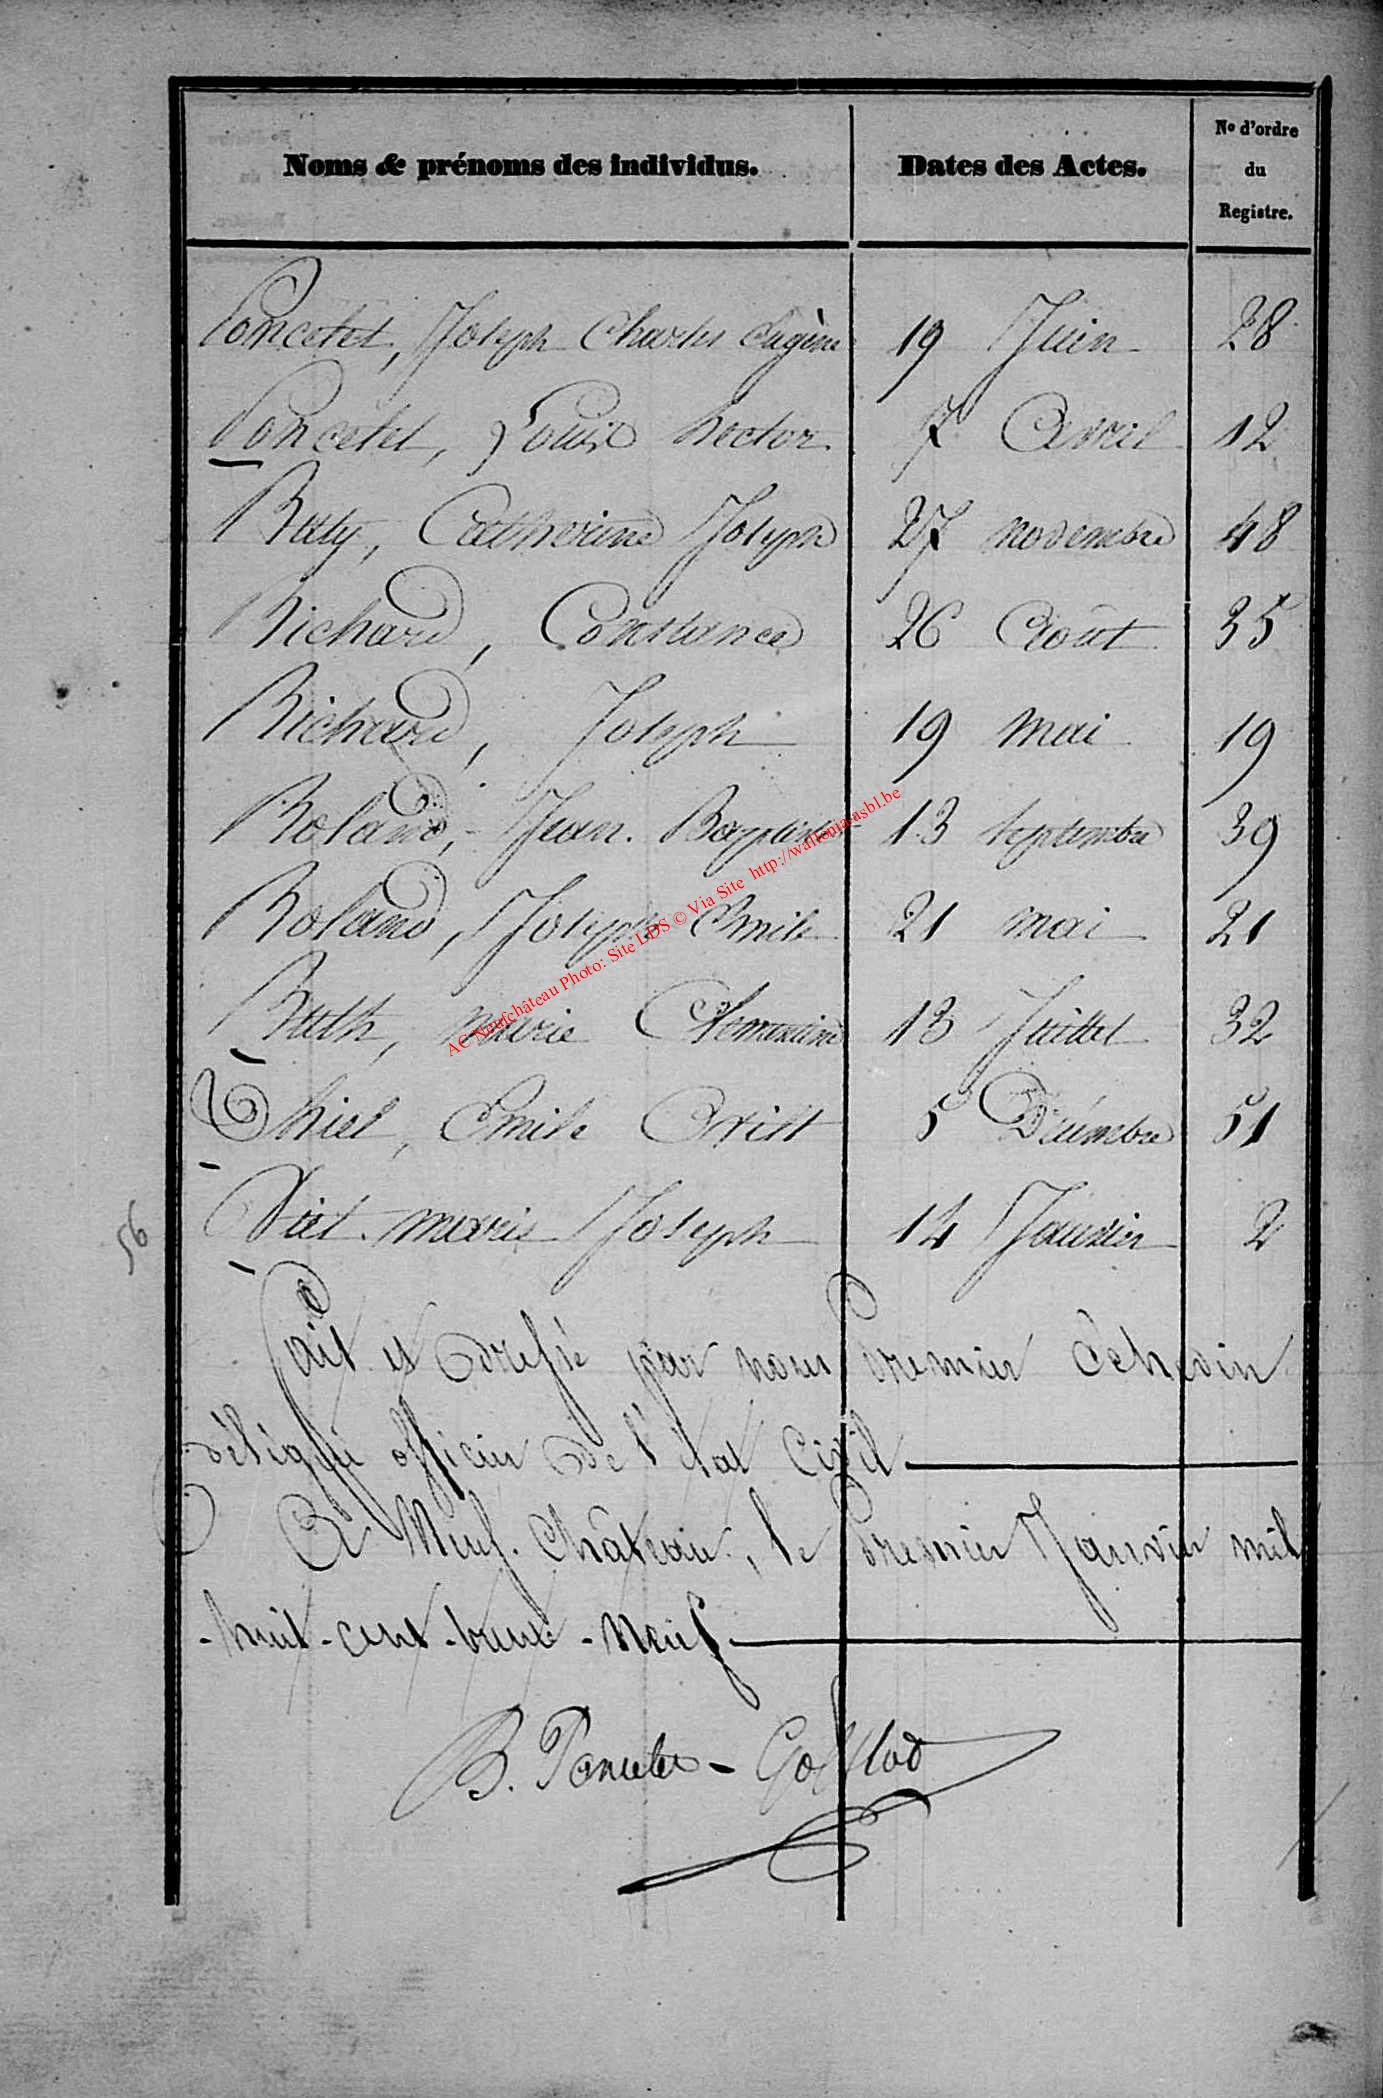 Noms & prénoms des individus. Dates des Actes. No d'ordre du Registre.
Poncelet, Joseph Charles Eugène 19 Juin 28
Poncelet, Louis hector 7 Avril 12
Ruty, Catherine Joseph 27 novembre 48
Richard, Constance 26 Août 35
Richard, Joseph 19 mai 19
Roland, Jean Baptiste 13 septembre 39
Roland, Joseph Emile 21 mai 21
Ruth, marie Clementine 13 Juillet 32
Thiel, Emile 5 Décembre 51
marie Joseph 14 Janvier 2
56
Fait et dressé par nous premier Echevin
délégué officier de l'état Civil
A Neuf-Château, le premier Janvier mil
-huit-cent-trente-neuf
B. Poncelet-
AC Neufchâteau Photo: Site LDS © Via Site http://wallonia-asbl.be